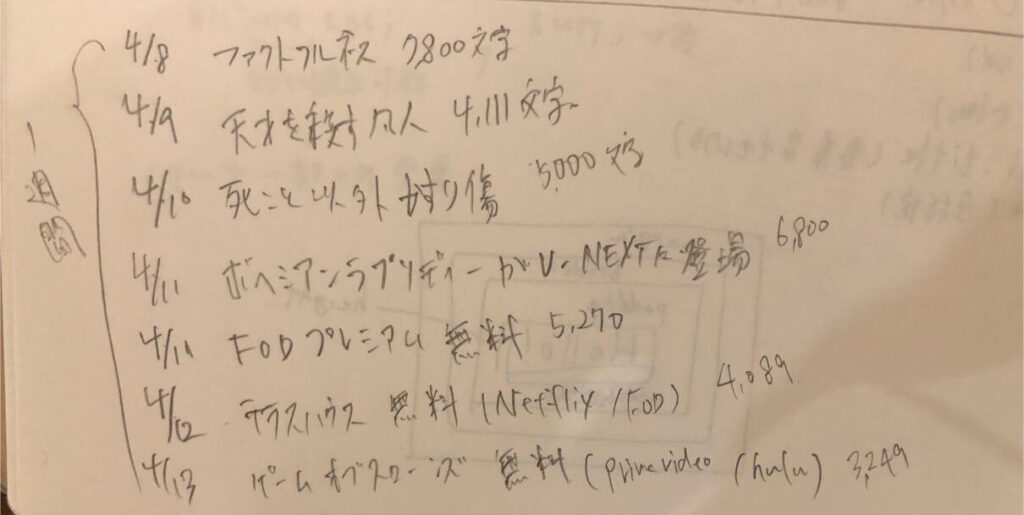 1週間
4/8 ファクトフルネス 7,800文字
4/9 天才を殺す凡人 4,111文字
4/10 死こと以外かすり傷 5,000文字
4/11 ボヘミアンラプソディーがU-NEXTに登場 6,800
4/11 FODプレミアム 無料 5,270
4/12 テラスハウス 無料 (Netflix/FOD) 4,089
4/13 ゲームオブスローンズ 無料 (Prime video/hulu) 3,249